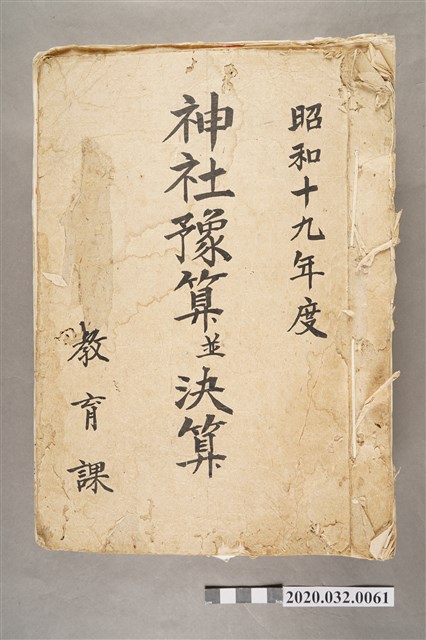 昭和十九年度
神社豫算並決算
教育課
2020.032.0061